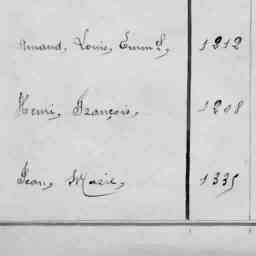 Amand, Louis, Emm L, 1212
Henri, François, 1208
Jean, Marie, 1335